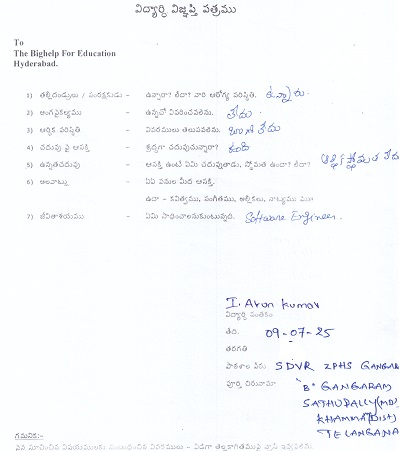 విద్యార్థి విజ్ఞప్తి పత్రము
To
The Bighelp For Education
Hyderabad.
1) తల్లిదండ్రులు / సంరక్షకుడు - ఉన్నారా? లేదా? వారి ఆరోగ్య పరిస్థితి. ఉన్నారు
2) అంగవైకల్యము - ఉన్నచో వివరించవలెను. లేదు
3) ఆర్థిక పరిస్థితి - వివరములు తెలుపవలెను. బాగా లేదు
4) చదువు పై ఆసక్తి - శ్రద్ధగా చదువుచున్నారా? కలదు
5) ఉన్నతచదువు - ఆసక్తి ఉంటే ఏమి చదువుతాడు, స్తోమత ఉందా? లేదా?
6) అలవాట్లు - ఏఏ పనుల మీద ఆసక్తి.
ఉదా - కవిత్వము, సంగీతము, అల్లికలు, నాట్యము
7) జీవితాశయము - ఏమి సాధించాలనుకుంటున్నది. Software Engineer.
I. Arun Kumar
విద్యార్థి సంతకం
తేది. 09-07-25
తరగతి
పాఠశాల పేరు SDVR ZPHS GANGAR
పూర్తి చిరునామా "B" GANGARAM
SATHUPALLY(MD)
KHAMMAM(DIST)
TELANGANA
గమనిక:-